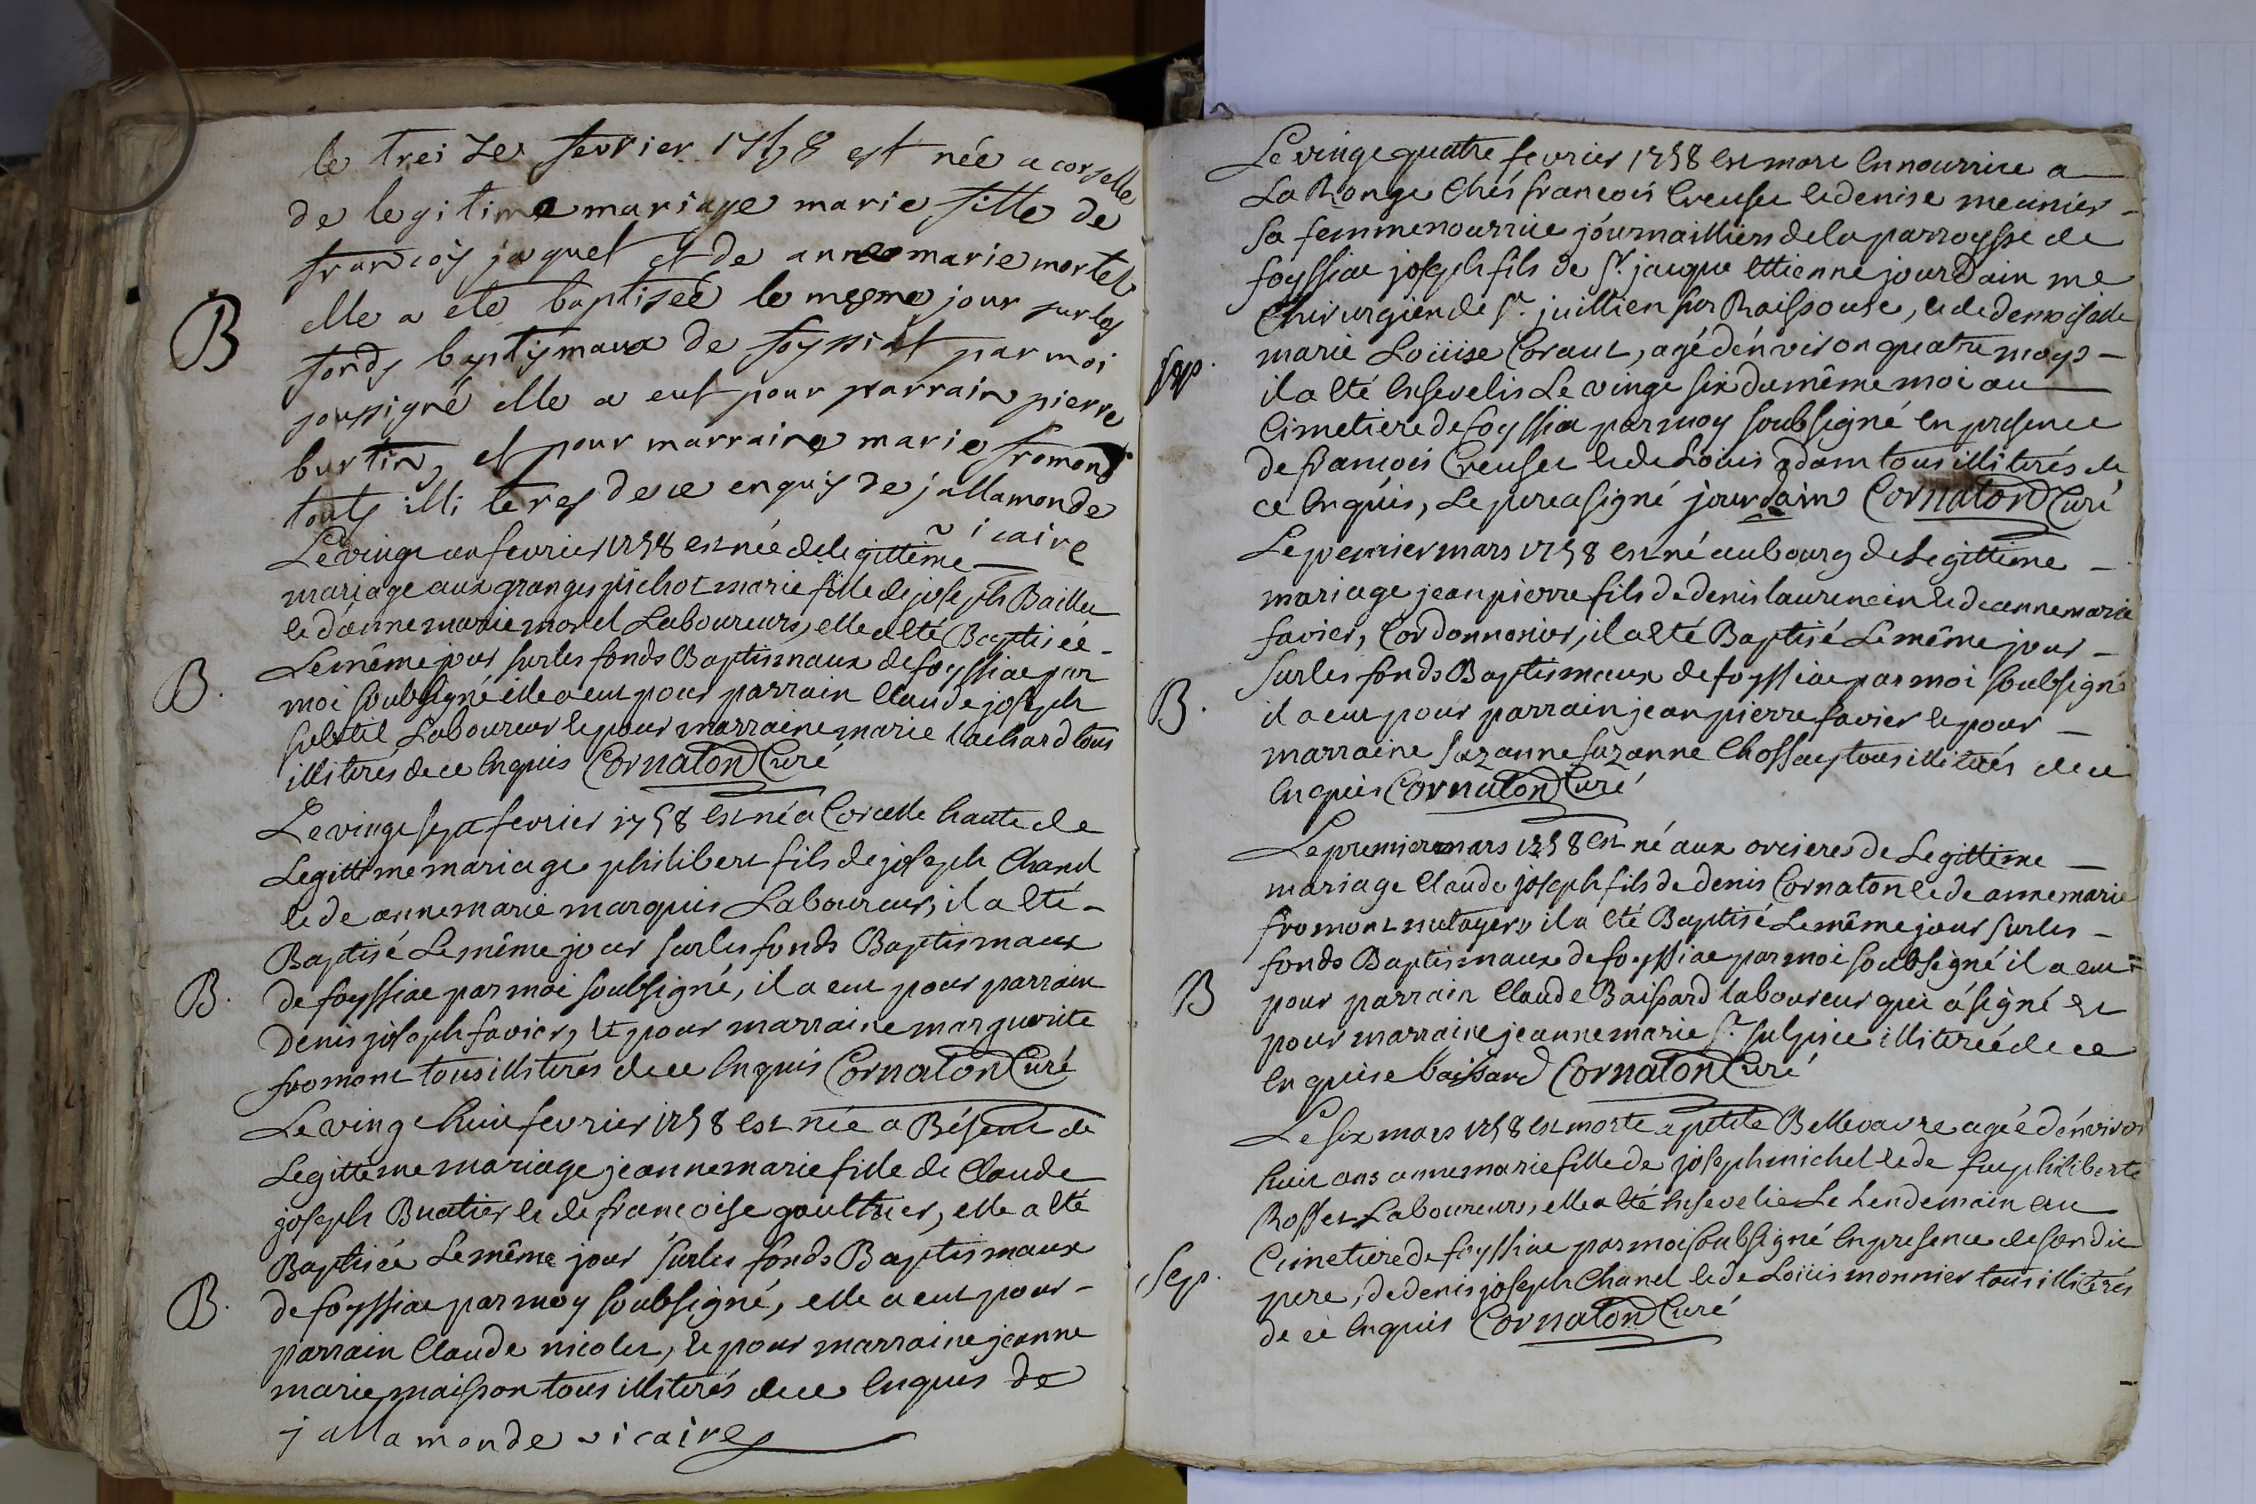 le treize fevrier 1758 est née a corselle
de legitime mariage marie fille de
francois jaquet et de anne marie mortel
elle a ete baptisée le mesme jour sur les
B
fonds baptismaux de foyssiat par moi
soussigné elle a eut pour parrain pierre
burtin, et pour marraine marie fromond
touts illiteres de ce enquis de jallamonde
vicaire
Le vingt un fevrier 1758 est née de legittime
mariage aux granges pichot marie fille de joseph Baillet
et d'anne marie morel Laboureurs, elle a eté Baptisée
Le même jour sur les fonds Baptismaux de foyssiac par
B.
moi soubsigné elle a eut pour parrain Claude joseph
subtil Laboureur et pour marraine marie lachard tous
illiteres de ce Enquis Cornaton Curé
Le vingt sept fevrier 1758 Est né a Corcelle haute de
Legittime mariage philibert fils de joseph Chanel
et de anne marie marquis Laboureurs, il a eté
Baptisé Le même jour sur les fonds Baptismaux
B.
de foyssiac par moi soubsigné, il a eut pour parrain
Denis joseph favier, Et pour marraine marguerite
fromont tous illiteres de ce Enquis Cornaton Curé
Le vingt huit fevrier 1758 est née a Béseme de
Legittime mariage jeanne marie fille de Claude
joseph Buatier et de francoise gaulthier, elle a eté
Baptisée Le même jour sur les fonds Baptismaux
B.
de foyssiac par moy soubsigné, elle a eut pour
parrain Claude nicolet, et pour marraine jeanne
marie maisson tous illiterés de ce Enquis de
jallamonde vicaire
Le vingt quatre fevrier 1758 est mort En nourrice a
La Ronge Chés francois Creuset et denise meunier
sa femme nourrice journailliers de la parroysse de
foyssiac joseph fils de sr. jacque Ettienne jourdain me
Chirurgien de st. juillien sur Raissouse, et de demoiselle
Sep.
marie Loüise Coraut, agé d'environ quatre moys
il a eté Ensevelis Le vingt six du même moi au
Cimetiere de foyssia par moy soubsigné En presence
de francois Creuset et de Loüis adam tous illiterés de
ce Enquis, Le pere a signé jourdain Cornaton Curé
Le premier mars 1758 Est né au bourg de Legittime
mariage jean pierre fils de denis laurencin et de anne marie
favier, Cordonnonier, il a eté Baptisé Le même jour
sur les fonds Baptismaux de foyssiac par moi soubsigné
B.
il a eut pour parrain jean pierre favier et pour
marraine suzanne suzanne Chossat tous illiterés de ce
Enquis Cornaton Curé
Le premier mars 1758 Est né aux orcieres de Legittime
mariage Claude joseph fils de denis Cornaton et de anne marie
fromont metayers, il a eté Baptisé Le même jour sur les
fonds Baptismaux de foyssiac par moi soubsigné il a eut
B
pour parrain Claude Baissard laboureur qui a signé Et
pour marraine jeanne marie st. sulpice illiterée de ce
Enquise baissard Cornaton Curé
Le six mars 1758 Est morte a petite Bellevavre agée d'environ
huit ans anne marie fille de joseph michel et de fue philiberte
Rosset Laboureurs, elle a eté Ensevelie Le Lendemain au
Cimetiere de foyssiac par moi soubsigné En presence de son dit
Sep.
pere, de denis joseph Chanel et de Loüis monnier tous illiterés
de ce Enquis Cornaton Curé